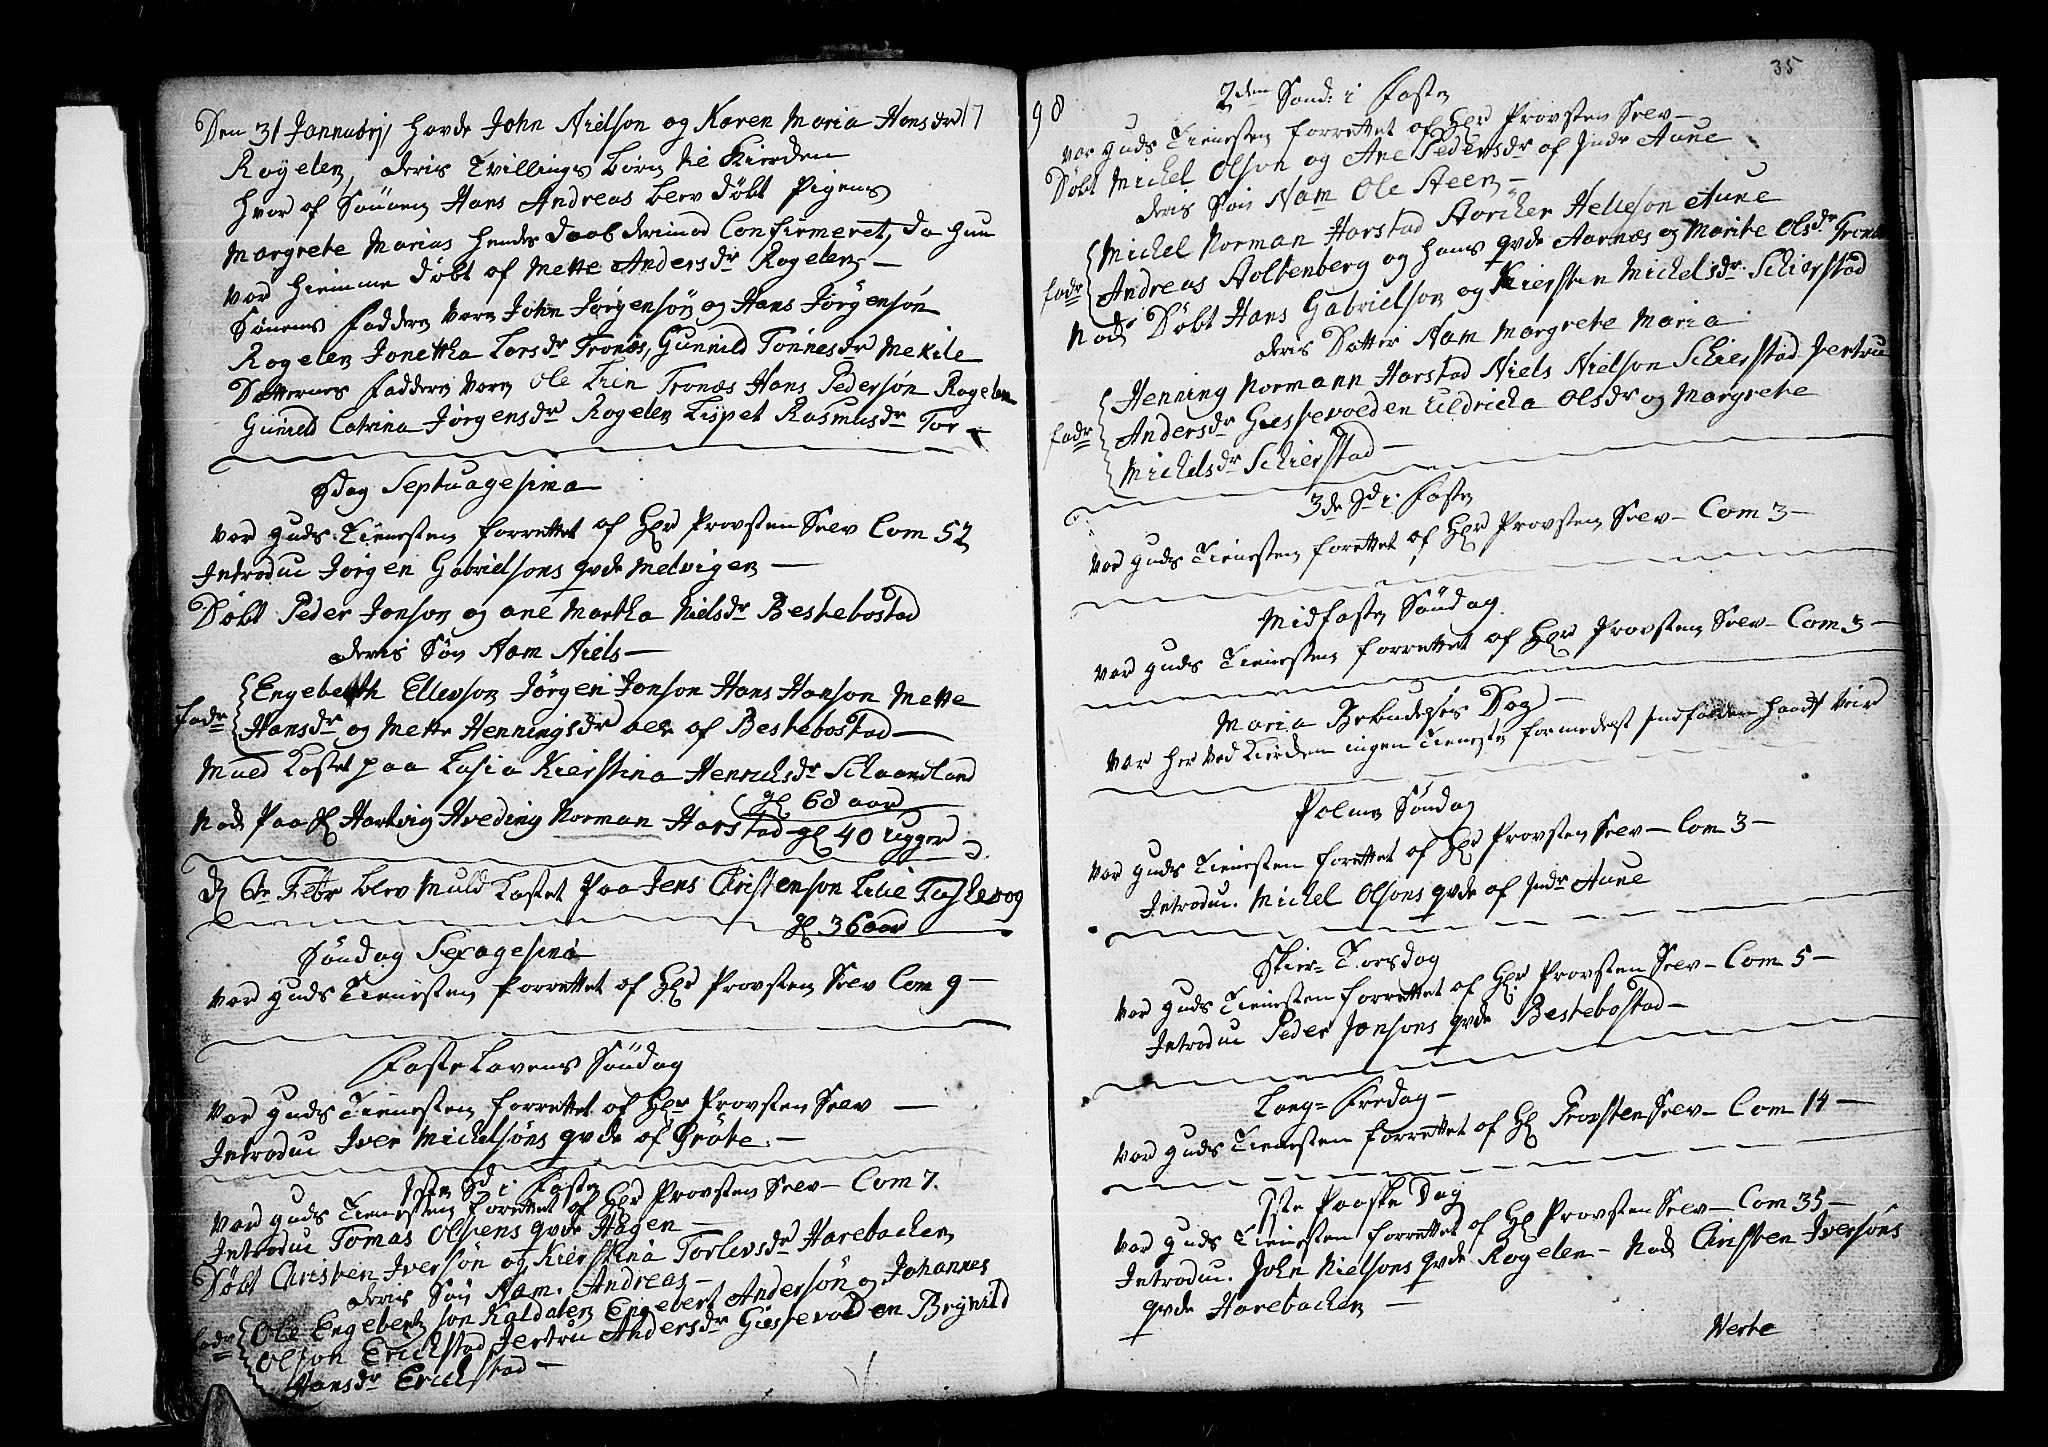 Den 31 Jannuarj, havde John Nielson og Karen Maria Hansdr 17
Rogelen, deris Tvillings börn til Kierken
hvor af Sönnen Hans Andreas blev döbt Pigens
Margrete Marias hendes daab derimod Confirmeret, da hun
var hiemme döbt af Mette Andersdr Rogelen —
Sönnens faddere vare John Jörgensön og Hans Jörgensön
Rogelen Jonettha Larsdr Tronæs, Gunnild Tönnesdr Mekile
Dotternes faddere vare Ole Trin Tronæs Hans Pedersön Rogelen
Gunild Catrina Jörgensdr Rogelen Lispet Rasmusdr Tor —
Sdag Septuagesima
var guds Tienesten forrettet af Hr Provsten Selv Com 52
Introduc Jörgen Gabrielsons qvde Melvigen —
Döbt Peder Jonson og ane Martha Nielsdr Bestebostad
deris Sön Nam Niels —
fadr Engebreth Ellevson Jörgen Jonson Hans Hanson Mette
Hansdr og Mette Henningsdr alle af Bestebostad —
Muld kastet paa Lasia Kierstina Henrichsdr Schaanland
gl 68 aar
Nok Paa Hartvig Hveding Norman Harstad gl 40 ugger
d 6te Febr blev Muld kastet Paa Jens Christenson Lilie Taskevog
gl 36 aar
Söndag Sexagesima
var guds Tienesten forrettet af Hr Provsten Selv Com 9 —
Fastelavens Söndag
var guds Tienesten forrettet af Hr Provsten Selv —
Introduc Iver Michelsöns qvde af Gröte —
1ste Sd i Fasten
var guds Tienesten forrettet af Hr Provsten Selv — Com 7.
Introduc Tomas Olsens qvde Hagen —
Döbt Christen Iversön og Kierstina Torlevsdr Harebacken
deris Sön Nam. Andreas —
fadr Ole Engebertson Kaldalen Engebert Andersön og Johannes
Olson Erickstad Jertru Andersdr Giessevolden Brynild
Hansdr Erickstad —
35
98
2den Sond: i Fasten
var guds Tienesten forrettet af Hr Provsten Selv —
Döbt Michel Olson og Ane Pedersdr af Indr Aune
deris Sön Nam Ole Steen —
Michel Norman Harstad Storcker Helleson Aune
fadr Andreas Holtenberg og hans qvde Aarnæs og Marite Olsdr Gron
Nok Döbt Hans Gabrielson og Kiersten Michelsdr Schierstad
deris Datter Nam Margrete Maria
Henning Normann Harstad Niels Nielson Schierstad Jertru
fadr Andersdr Giessevolden Uldricka Olsdr og Margrete
Michelsdr Schierstad —
3de Sd i Fasten
var guds Tienesten forettet af Hr Provsten Selv — Com 3 —
Midfasten Söndag
var guds Tienesten forrettet af Hr Provsten Selv — Com 3 —
Maria Bebudelses Dag —
var her ved Kierken ingen Tieneste formedelst indfalden haardt Veir
Palme Söndag
var guds Tienesten forrettet af Hr Provsten Selv — Com 3 —
Introduc. Michel Olsons qvde af Indr Aune
Skier-Torsdag
var guds Tienesten forrettet af Hr Provsten Selv — Com 5 —
Introduc Peder Jonsons qvde Bestebostad —
Lang-Fredag —
var guds Tienesten forrettet af Hr Provsten Selv — Com 14 —
1ste Paaske Dag
var guds Tienesten forrettet af Hr Provsten Selv — Com 35 —
Introduc. John Nielsons qvde Rogelen — Nok Christen Iversöns
qvde Harebacken —
Verte